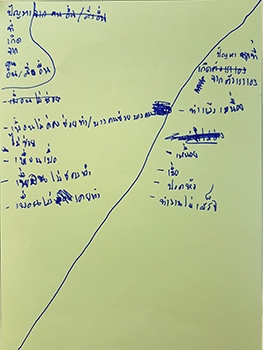 ปัญหา
ที่
เกิด
จาก
คนอื่น/สิ่งอื่น
- เพื่อนไม่ช่วย
- เพื่อนไม่ค่อยช่วยทำ/บางคนช่วยบางคน
ไม่ช่วย
- เพื่อนเบื่อ
- เพื่อนไม่ชอบทำ
- เพื่อนไม่เคยทำ
ปัญหาที่
เกิด
จากตัวเราเอง
- ทำแล้วเหนื่อย
- เหนื่อย
- เบื่อ
- ปวดหัว
- ทำงานไม่เสร็จ